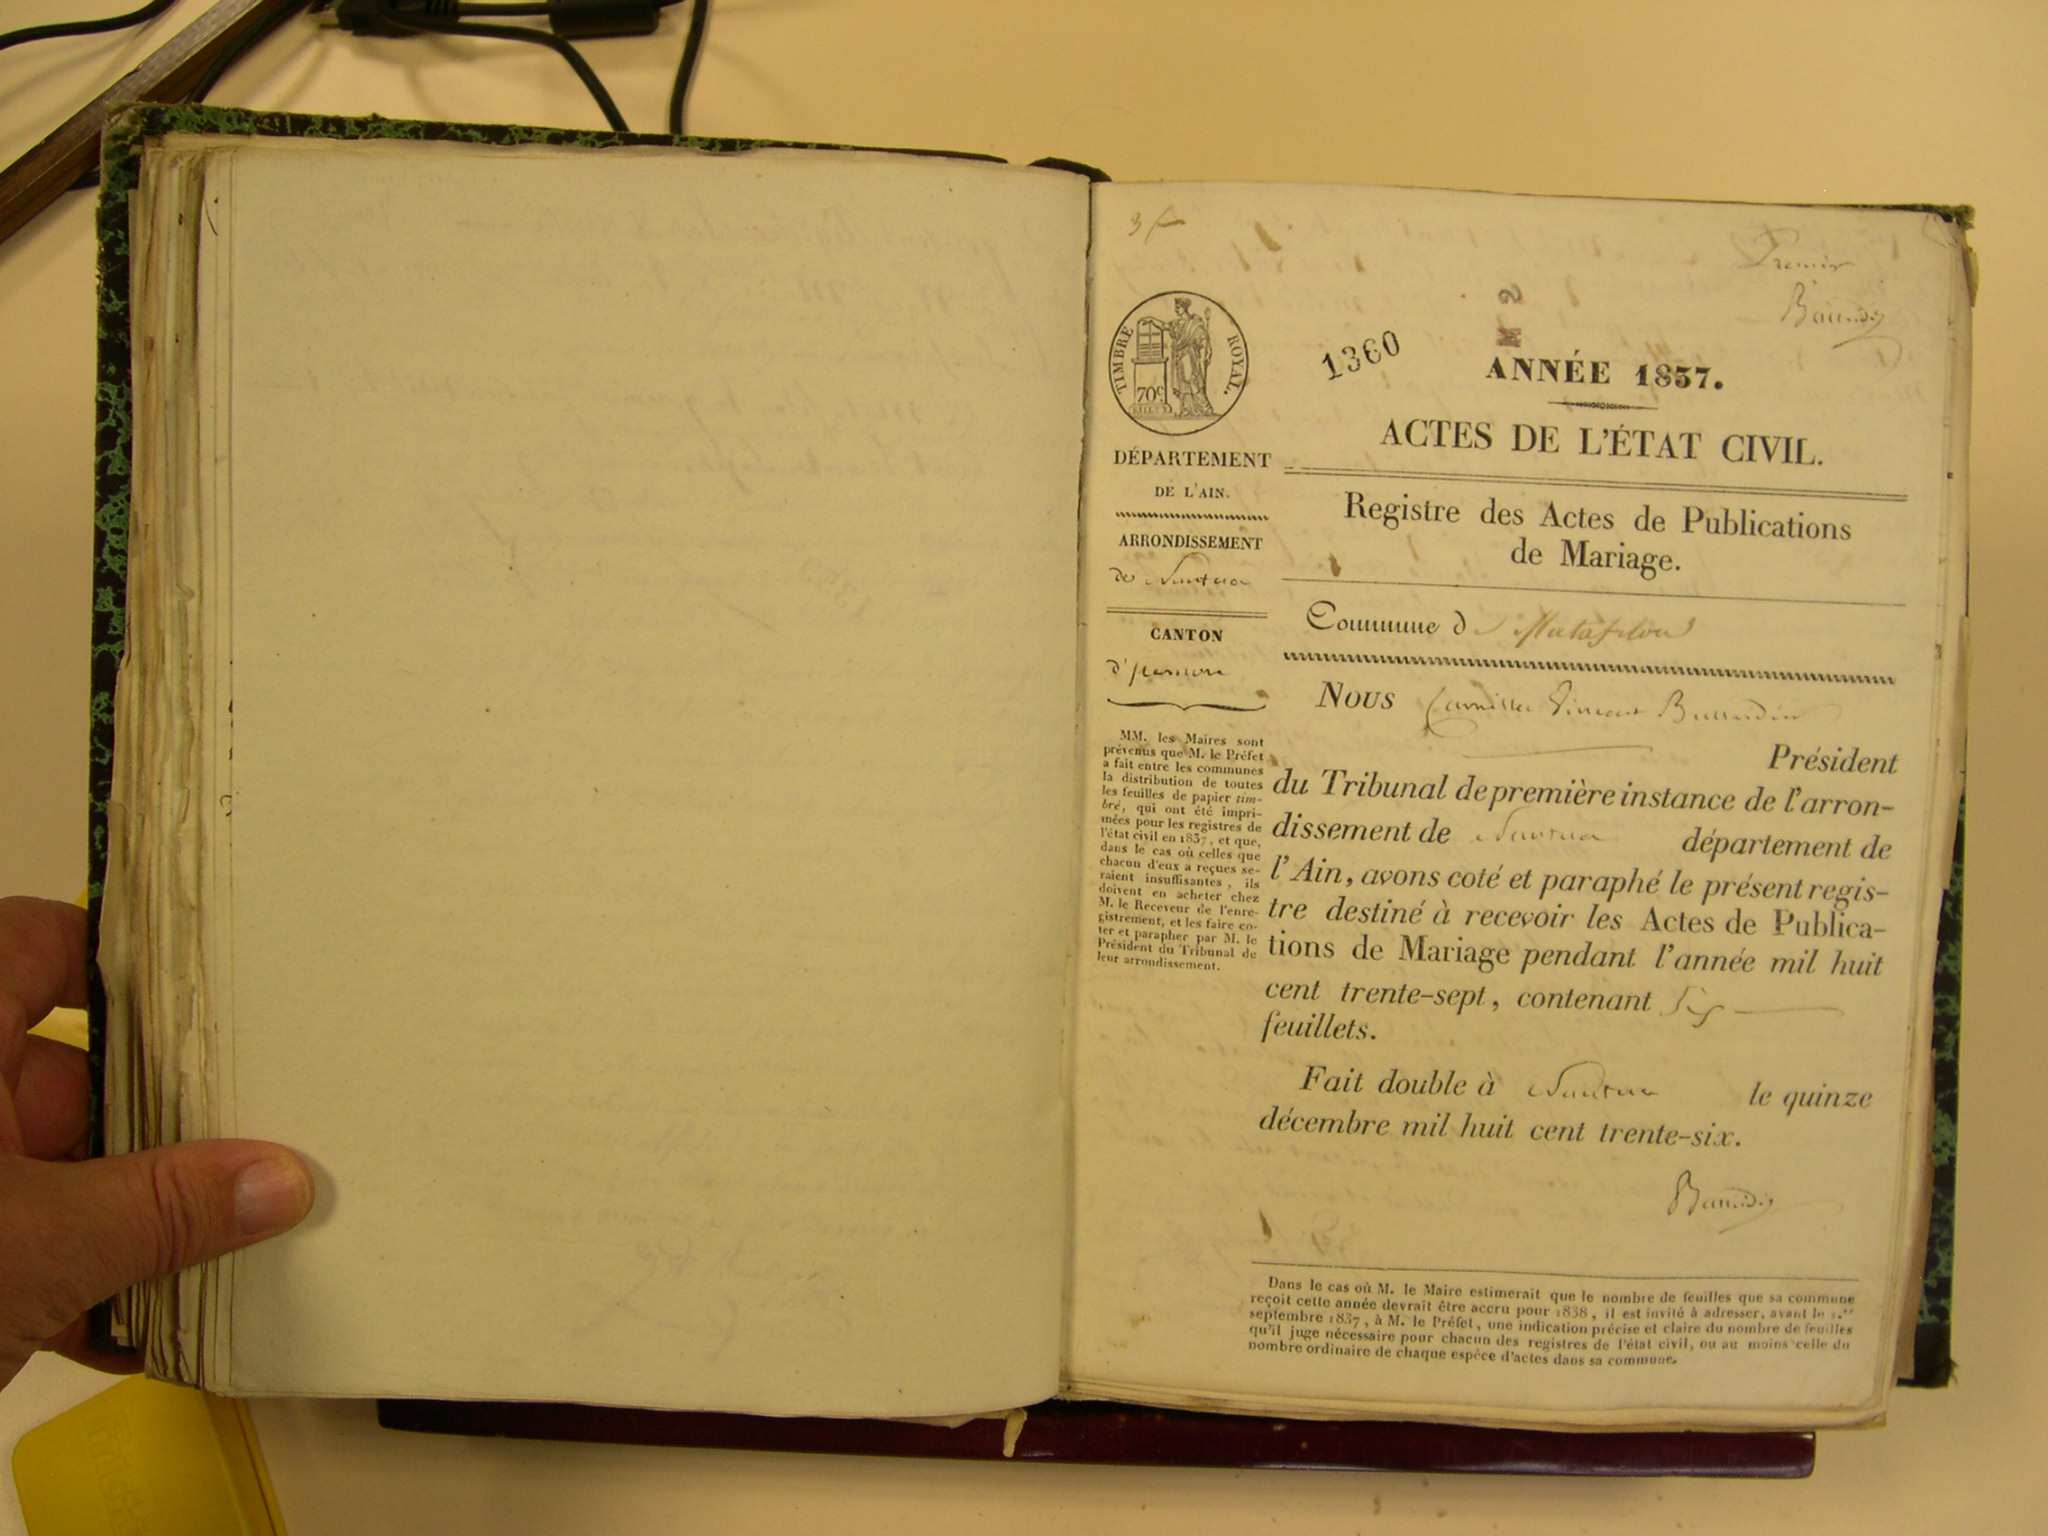 Premier
Baudin
TIMBRE ROYAL
70c
1360
ANNÉE 1837.
ACTES DE L'ÉTAT CIVIL.
DÉPARTEMENT
DE L'AIN.
ARRONDISSEMENT
de Nantua
CANTON
d'
MM. les Maires sont
prévenus que M. le Préfet
a fait entre les communes
la distribution de toutes
les feuilles de papier tim-
bré, qui ont été impri-
mées pour les registres de
l'état civil en 1837, et que,
dans le cas où celles que
chacun d'eux a reçues se-
raient insuffisantes, ils
doivent en acheter chez
M. le Receveur de l'enre-
gistrement, et les faire co-
ter et parapher par M. le
Président du Tribunal de
leur arrondissement.
Registre des Actes de Publications
de Mariage.
Commune d Matafelon
Nous Vincent
Président
du Tribunal de première instance de l'arron-
dissement de Nantua département de
l'Ain, avons coté et paraphé le présent regis-
tre destiné à recevoir les Actes de Publica-
tions de Mariage pendant l'année mil huit
cent trente-sept, contenant Six
feuillets.
Fait double à Nantua le quinze
décembre mil huit cent trente-six.
Baudin
Dans le cas où M. le Maire estimerait que le nombre de feuilles que sa commune
reçoit cette année devrait être accru pour 1838, il est invité à adresser, avant le 1.er
septembre 1837, à M. le Préfet, une indication précise et claire du nombre de feuilles
qu'il juge nécessaire pour chacun des registres de l'état civil, ou au moins celle du
nombre ordinaire de chaque espèce d'actes dans sa commune.